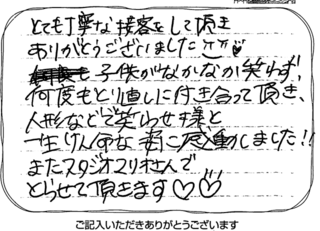 とても丁寧な接客をして頂き
ありがとうございました
子供がなかなか笑わず、
何度もとり直しに付き合って頂き、
人形などで笑わせ様と
一生けん命な姿に感動しました!!
またスタジオマリオさんで
とらせて頂きます♡♡
ご記入いただきありがとうございます